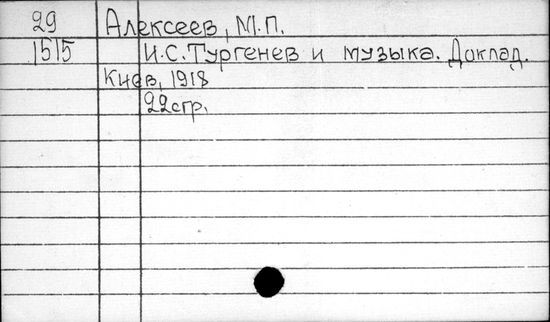 29 Алексеев, М.П.
1515 И.С.Тургенев и музыка. Доклад.
Киев, 1918
22стр.